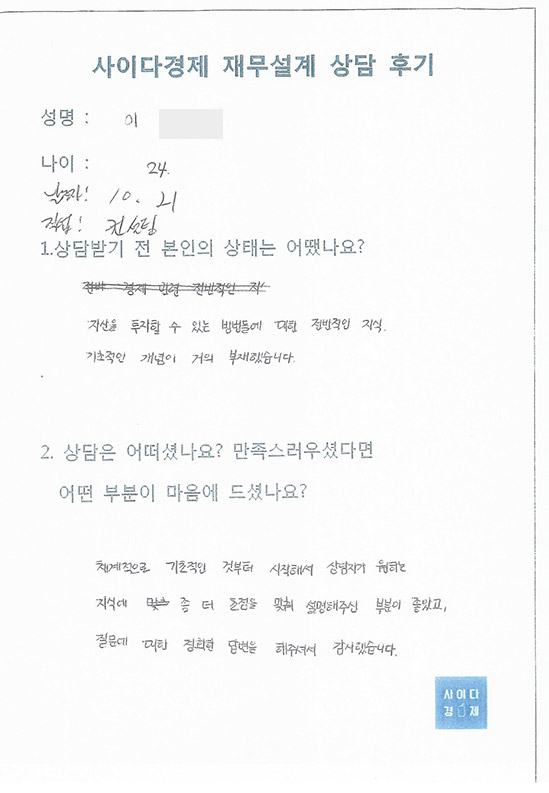 사이다경제 재무설계 상담 후기
성명 : 이
나이 : 24.
날짜! 10. 21
직업! 컨설팅
1.상담받기 전 본인의 상태는 어땠나요?
경제 관련 전반적인 지
자산을 투자할 수 있는 방법들에 대한 전반적인 지식.
기초적인 개념이 거의 부재했습니다.
2. 상담은 어떠셨나요? 만족스러우셨다면
어떤 부분이 마음에 드셨나요?
체계적으로 기초적인 것부터 시작해서 상담자가 원하는
지식에 좀 더 초점을 맞춰 설명해주신 부분이 좋았고,
질문에 대한 정확한 답변을 해주셔서 감사했습니다.
사이다
경제